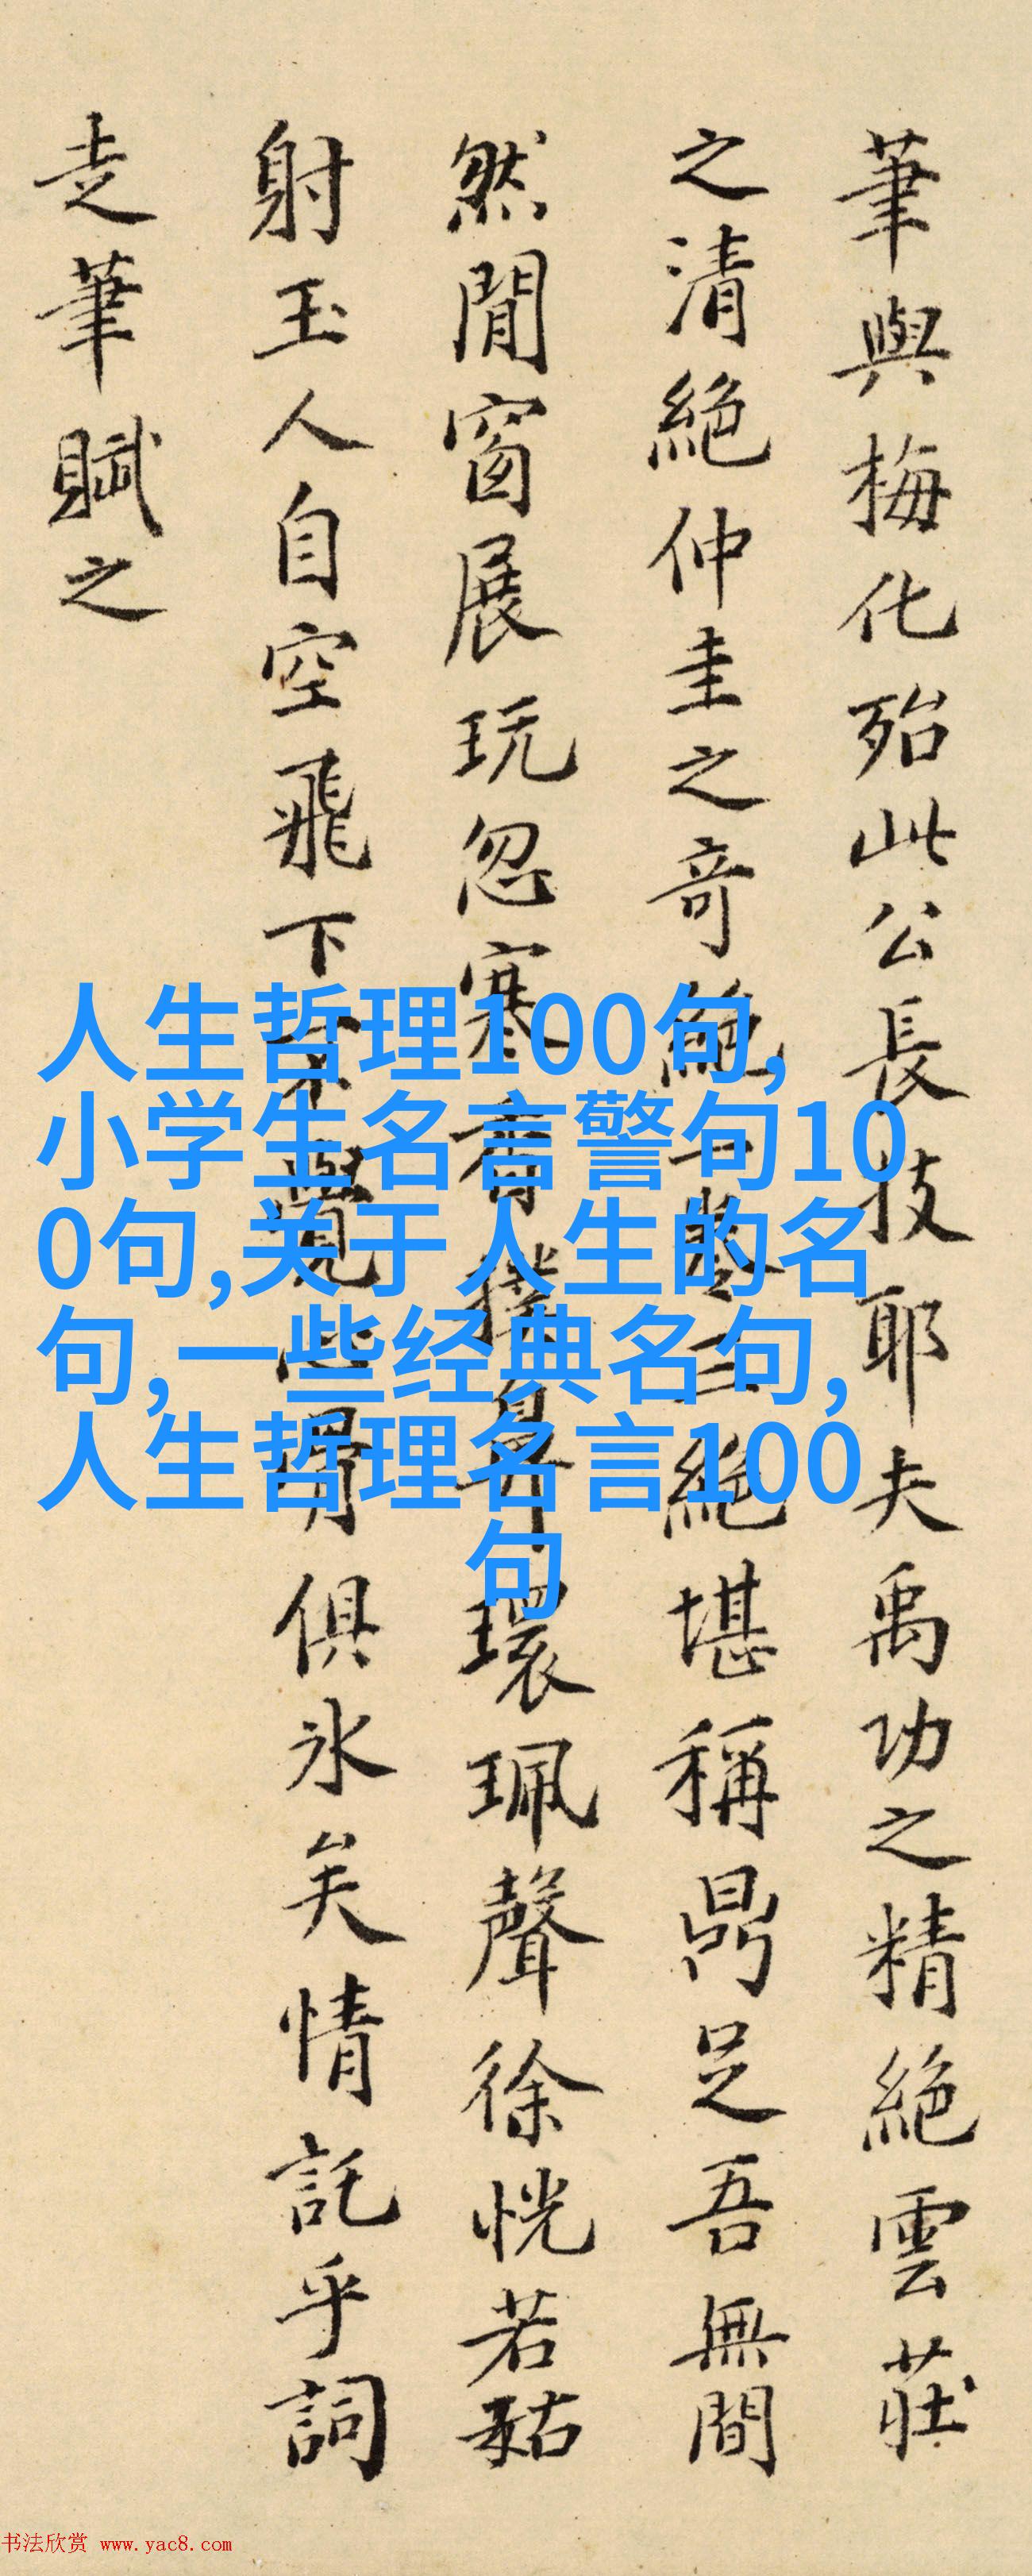 筆與梅化殆此公長技耶夫禹功之精絕雲莊
之清絕仲圭之奇絕一卷三絕堪稱鼎足吾無間
然閒窗展玩忽寒香撲鼻環珮聲徐恍若姑
射玉人自空飛下覺骨俱冰矣情託乎詞
走筆賦之
人生哲理100句,
小学生名言警句10
0句,关于人生的名
句,一些经典名句,
人生哲理名言100
句
书法欣赏 www.yac8.com